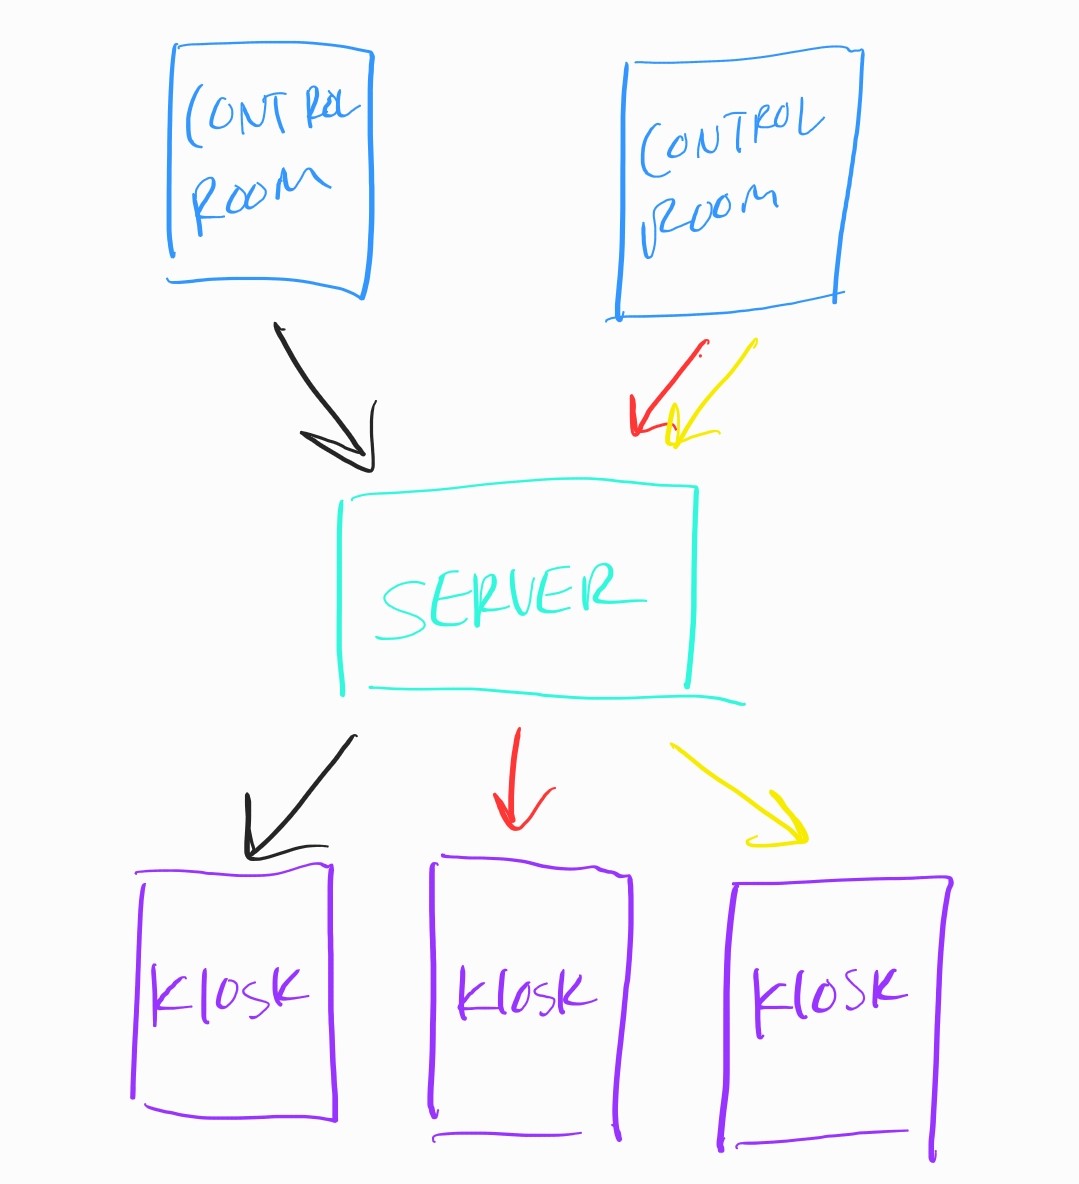 CONTROL
ROOM
CONTROL
ROOM
SERVER
KIOSK
KIOSK
KIOSK